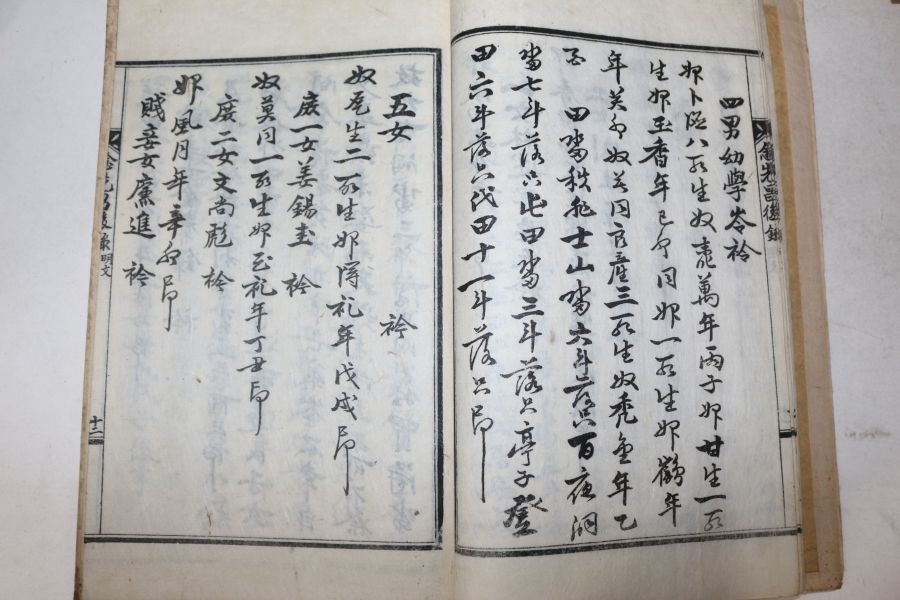 四男幼學岺衿
婢卜德八所生奴亀萬年丙子婢甘生一所
生婢玉香年己卯同婢一所生婢鸖年
年癸卯奴若同良産三所生奴禿金年乙
田畓秩士山畓六斗落只百夜洞
畓七斗落只此田畓三斗落只亭子登
田六斗落只代田十一斗落只印
五女 衿
奴尾生二所生婢得礼年戊戌印
庶一女姜錫圭 衿
奴莫同一所生婢礼年丁丑印
庶二女文尚彪 衿
婢風月年辛卯印
賤妾女廉進 衿
後錄
明文
十二